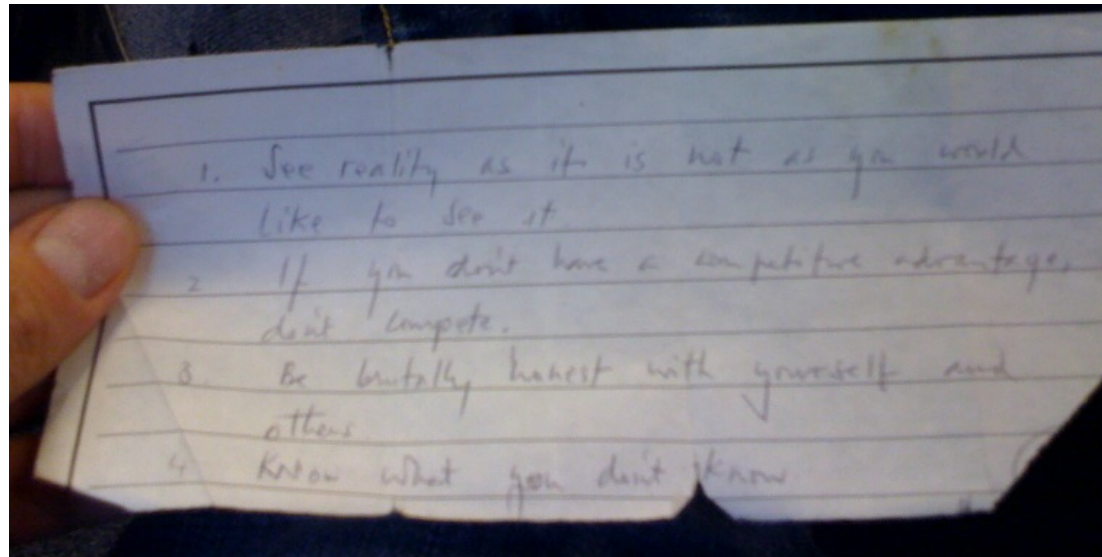 1. See reality as it is not as you would
like to see it
2 If you don't have a competitive advantage,
don't compete.
3 Be brutally honest with yourself and
others
4 Know what you don't know